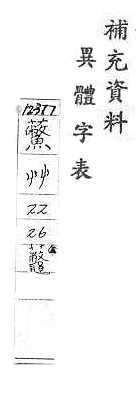 補充資料
異體字表
12377
艸
22
26